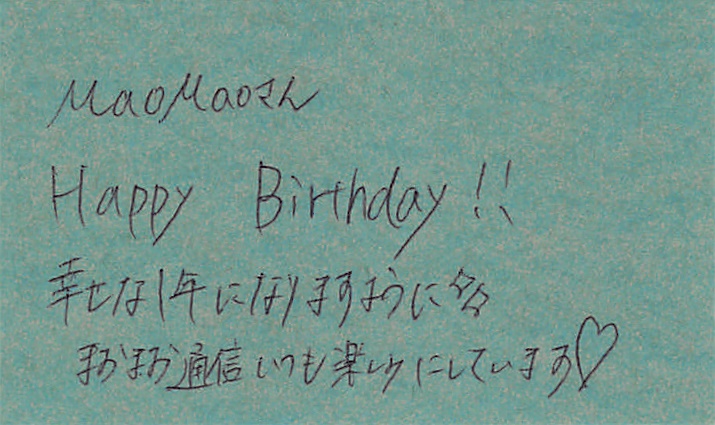 MaoMaoさん
Happy Birthday!!
幸せな1年になりますように☆☆
まおまお通信いつも楽しみにしています♡